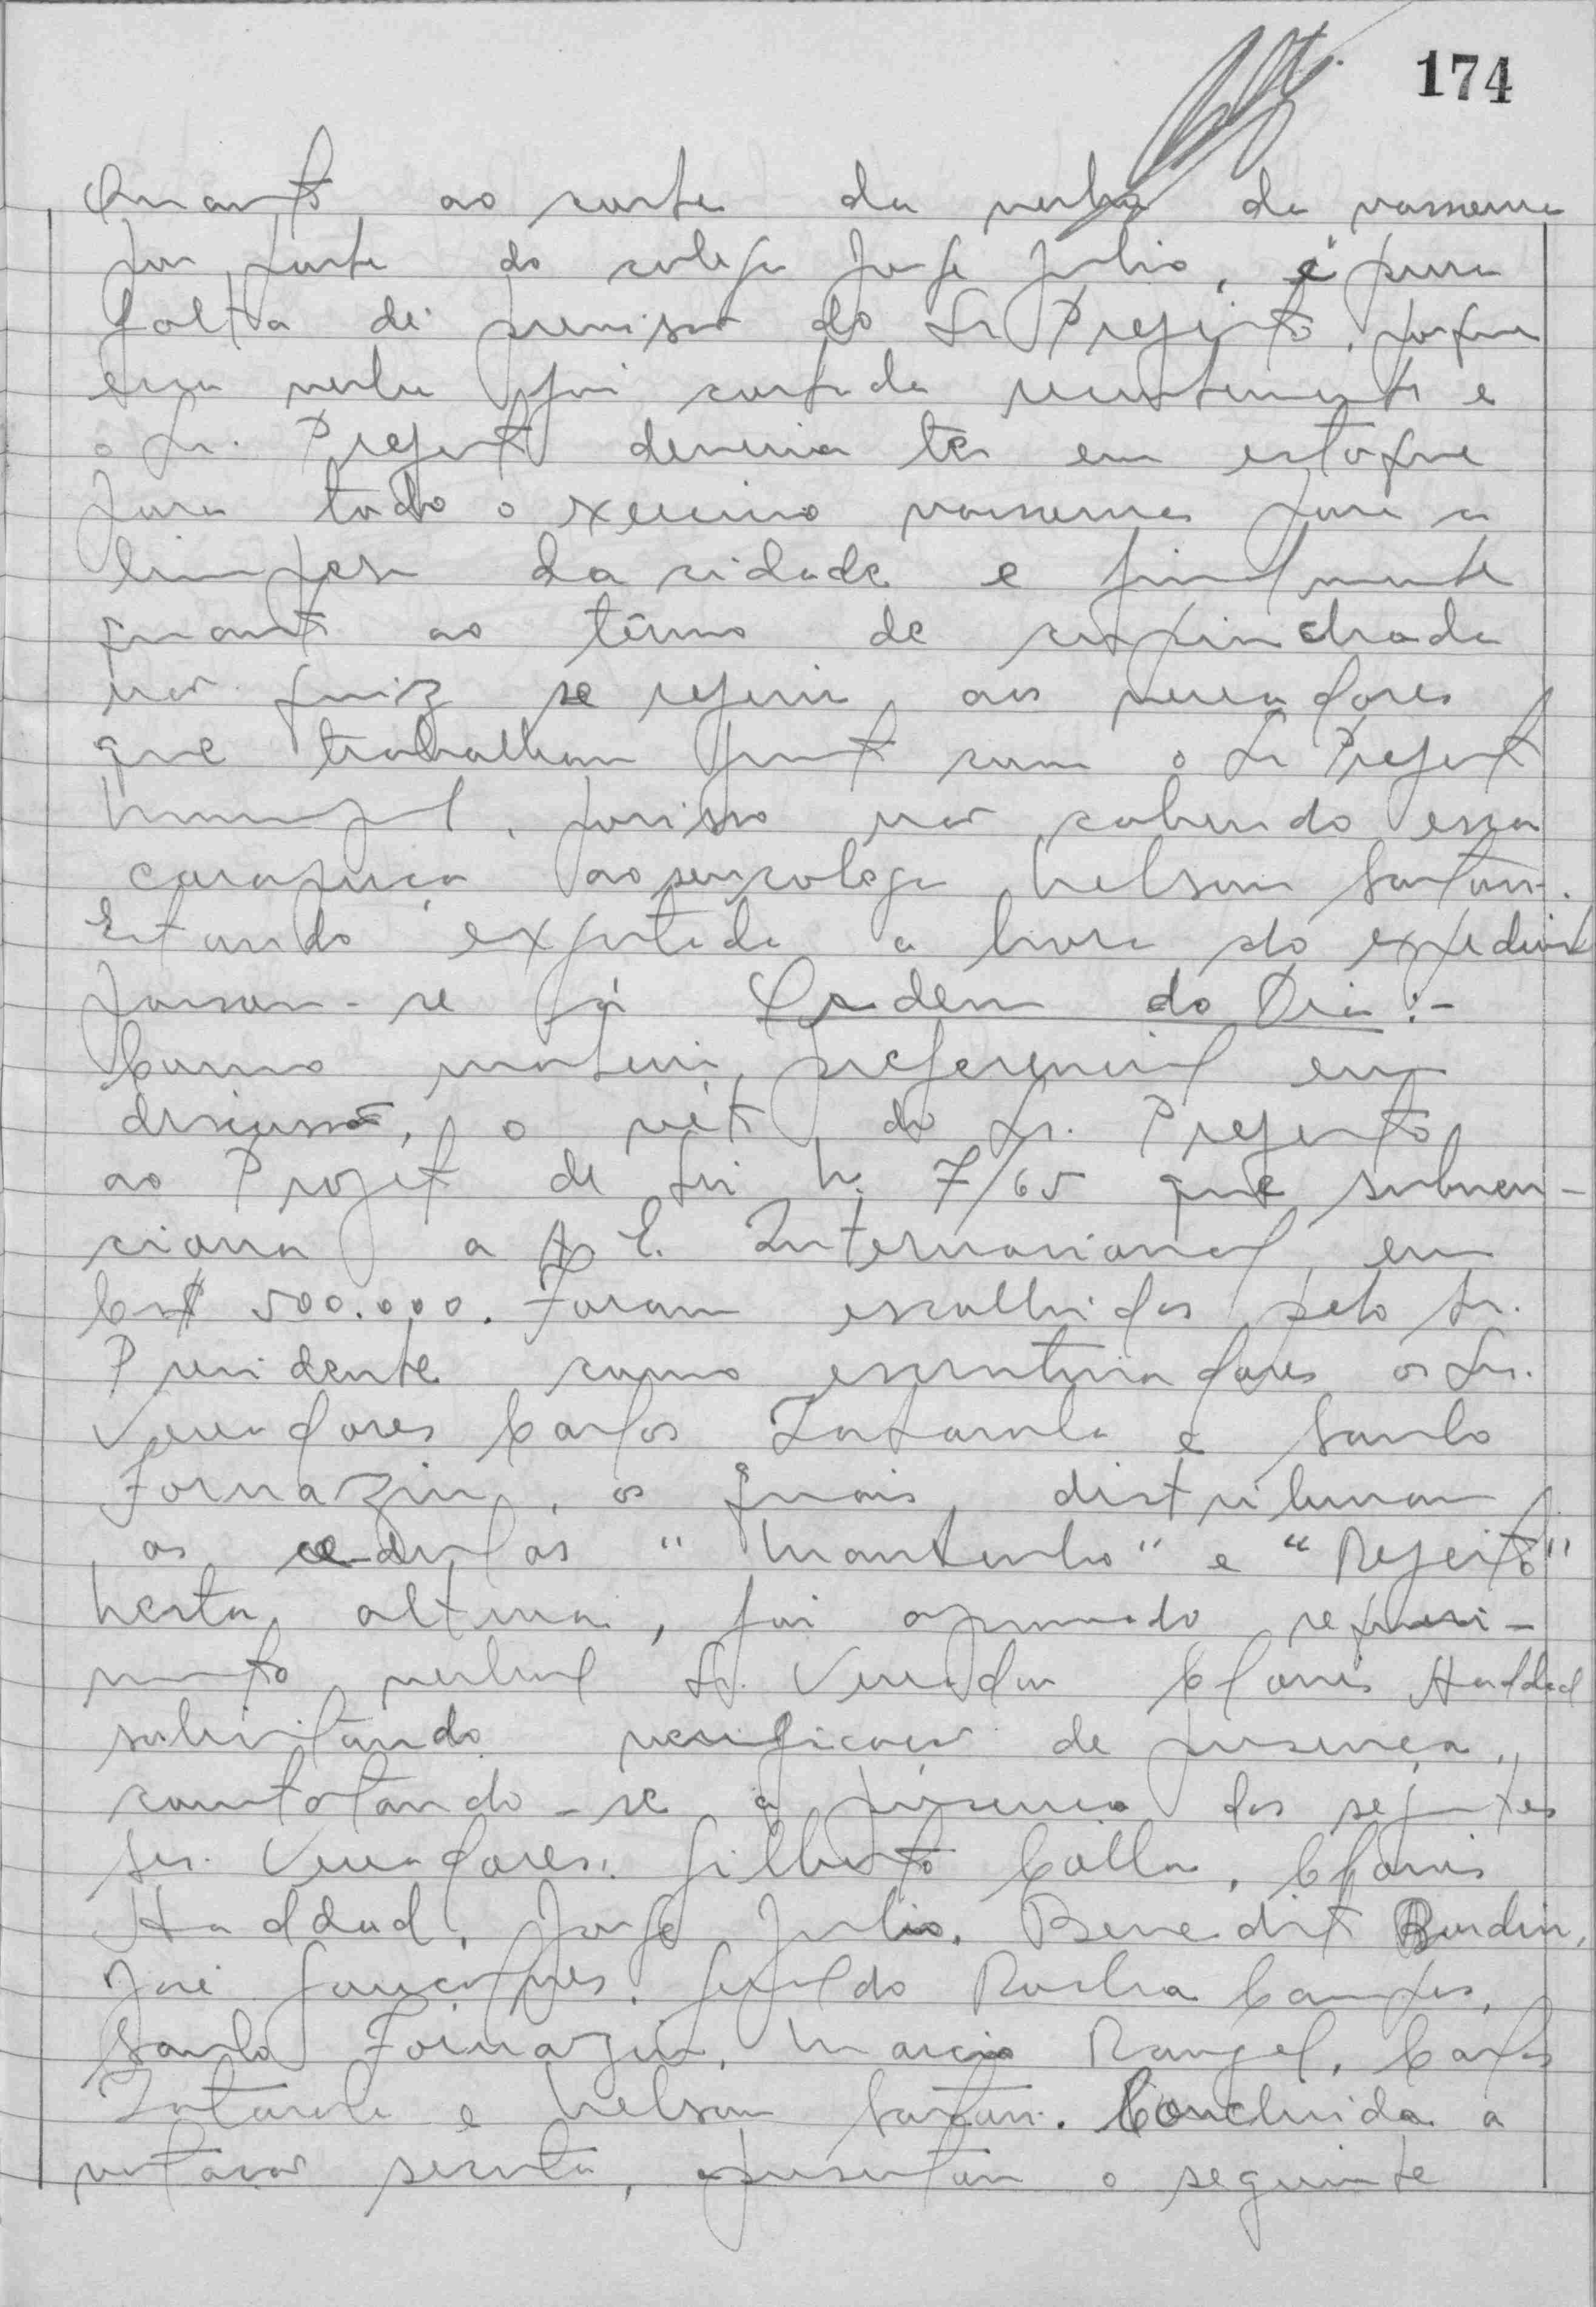 174
Quanto ao corte da verba de vassoura
por parte do colega Jorge Julio, é pura
falta de previsão do Sr Prefeito, porque
essa verba foi cortada recentemente e
o Sr. Prefeito deveria ter em estoque
para todo o exercicio vassouras para a
limpesa da cidade e finalmente
quanto ao têrmo de
não quiz se referir aos vereadores
que trabalham junto com o Sr Prefeito
Municipal, porisso não cabendo essa
carapuça ao seu colega Nelson Santari.
Estando exgotada a hora do expediente
passou-se já Ordem do Dia :-
Como materia preferencial em
discussão, o véto do Sr. Prefeito
ao Projeto de Lei N. 7/65 que subven-
ciona a A E. Internacional em
Cr$ 500.000. Foram escolhidos pelo Sr.
Presidente como escrutinadores os Srs.
Vereadores Carlos Zatarola e Santo
Fornazin, os quais distribuiram
as cedulas "Mantenho" e "Rejeito"
Nesta altura, foi aprovado requeri-
mento verbal Sr. Vereador Clovis Haddad
solicitando verificação de presença,
constatando-se a presença dos seguintes
srs. Vereadores: Gilberto Colla, Clovis
Haddad, Jorge Julio, Benedito Bordin,
José Gonçalves, Geraldo Rocha Campos,
Santo Fornazin, Marcio Rangel, Carlos
Zatarola e Nelson Santari. Concluida a
votação secreta, apresentou o seguinte